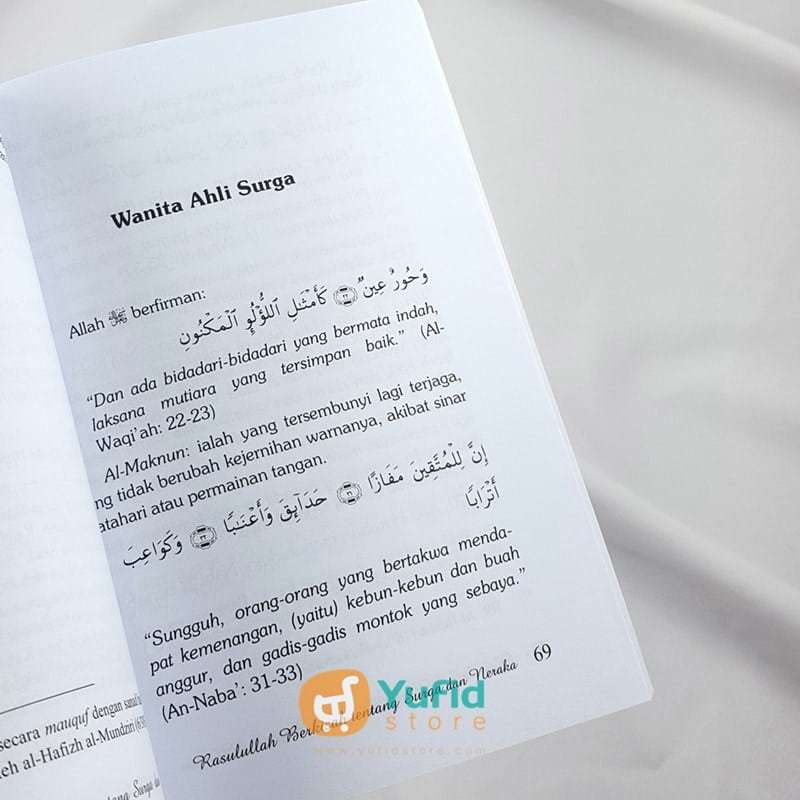 Wanita Ahli Surga
Allah ﷻ berfirman:
وَحُورٌ عِينٌ ۝٢٢ كَأَمْثَٰلِ ٱللُّؤْلُؤِ ٱلْمَكْنُونِ
“Dan ada bidadari-bidadari yang bermata indah,
laksana mutiara yang tersimpan baik.” (Al-
Waqi’ah: 22-23)
Al-Maknun: ialah yang tersembunyi lagi terjaga,
ng tidak berubah kejernihan warnanya, akibat sinar
atahari atau permainan tangan.
إِنَّ لِلْمُتَّقِينَ مَفَازًا ۝٣١ حَدَآئِقَ وَأَعْنَٰبًا ۝٣٢ وَكَوَاعِبَ
أَتْرَابًا
“Sungguh, orang-orang yang bertakwa menda-
pat kemenangan, (yaitu) kebun-kebun dan buah
anggur, dan gadis-gadis montok yang sebaya.”
(An-Naba’: 31-33)
Rasulullah Berkisah tentang Surga dan Neraka 69
secara mauquf dengan sanad
eh al-Hafizh al-Mundziri
Surga
Yufid
store
www.yufidstore.com